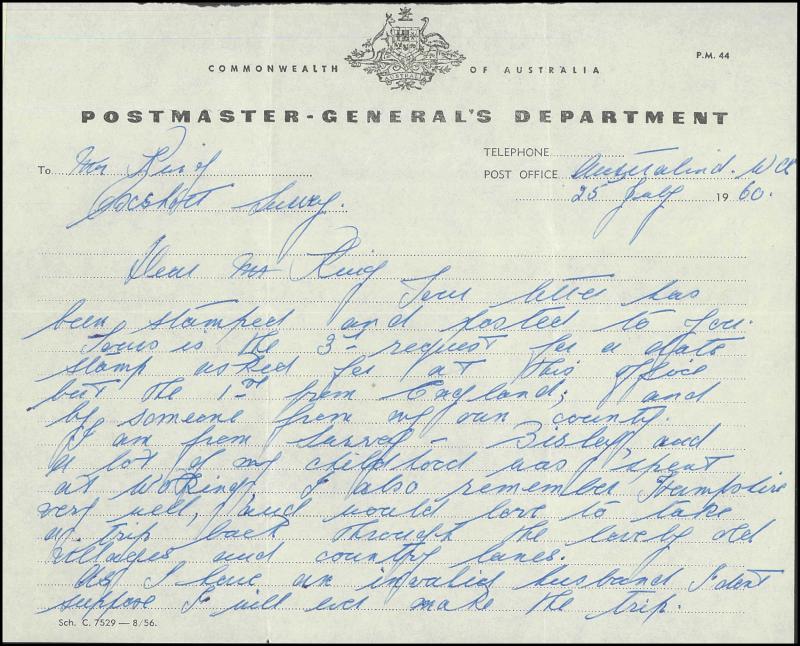 COMMONWEALTH OF AUSTRALIA
P.M. 44
POSTMASTER-GENERAL'S DEPARTMENT
To Mr King
Oxshott Surrey.
TELEPHONE
POST OFFICE Australind. W A
25 July 1960.
Dear Mr King
Your letter has
been stamped and posted to you.
Yours is the 3rd request for a date
stamp asked for at this office
but the 1st from England; and
by someone from my own county.
I am from Surrey - Bisley, and
a lot of my childhood was spent
at Woking, I also remember Hampshire
very well, and would love to take
a trip back through the lovely old
villages and country lanes.
As I have an invalid husband I dont
suppose I will ever make the trip.
Sch. C. 7529 — 8/56.